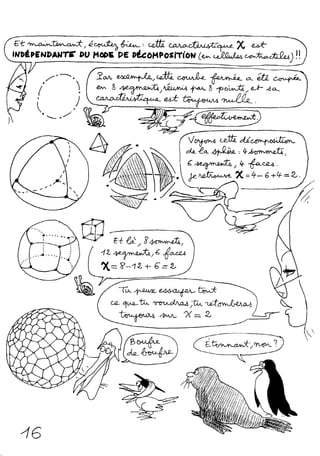 Et maintenant, écoutez bien : cette caractéristique χ est
INDÉPENDANTE DU MODE DE DÉCOMPOSITION (en cellules contractiles) !!
Par exemple, cette courbe fermée a été coupée
en 8 segments, réunis par 8 points, et sa
caractéristique est toujours nulle.
effectivement
Voyons cette décomposition
de la sphère : 4 sommets,
6 segments, 4 faces.
Je retrouve χ = 4 – 6 + 4 = 2.
Et là, 8 sommets,
12 segments, 6 faces
χ = 8 – 12 + 6 = 2
Tu peux essayer tout
ce que tu voudras, tu retomberas
toujours sur χ = 2
Bougre
de bougre.
Étonnant, non ?
16